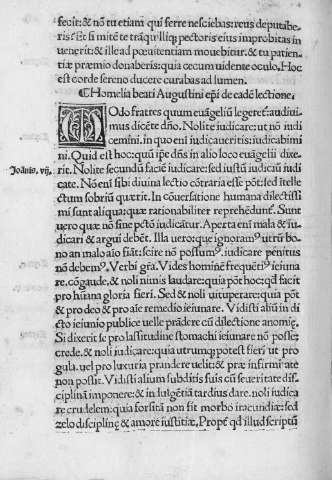 fecit: & nō tu etiam qui ferre nesciebas: reus deputabe-
ris. Et si mitē te trāq̇llūq; pectoris eius improbitas in
uenerit: & ille ad pœnitentiam mouebitur. & tu patien-
tiæ præmio donaberis: quia cecum uidente oculo. Hoc
est corde sereno ducere curabas ad lumen.
¶ Homelia beati Augustini epi de eadē lectione.
MOdo fratres quum euāgēliū legeret̄: audiui-
mus dicētē dn̄o. Nolite iudicare: ut nō iudi
cemini. in quo eni iudicaueritis: iudicabimi
ni. Quid est hoc: quū ip̄e dn̄s in alio loco euāgelii dixe-
Joānis. vij. rit. Nolite secundū faciē iudicare: sed iustū iudiciū iudi
cate. Nō enī sibi diuina lectio cōtraria esse pōt: sed ītelle
ctum sobriū quærit. In cōuersatione humana dilectissi
mi sunt aliqua: quæ rationabiliter reprehēdunt̄. Sunt
uero quæ nō sine pctō iudicātur. Aperta eni mala & iu
dicari & argui debēt. Illa uero: que ignoram⁹ utrū bo-
no an malo aīo fiāt: scire nō possum⁹. iudicare penitus
nō debem⁹. Verbi gr̄a. Vides hominē frequēti⁹ ieiuna
re. cōgaude, & noli nimis laudare: quia pōt hoc: qd̄ facit
pro huāna gloria fieri. Sed & noli uituperare: quia pōt
& pro deo & pro aīe remedio ieiunare. Vidisti aliū in di
cto ieiunio publice uelle prādere cū dilectione anoniæ.
Si dixerit se pro lassitudine stomachi ieiunare nō posse:
crede. & noli iudicare: quia utrumq; potest fieri ut pro
gula. uel pro luxuria prandere uelit: & præ infirmitate
non possit. Vidisti alium subditis suis cū seueritate dis-
ciplinā imponere: & in dulgētiā tardius dare. noli iudica
re crudelem: quia forsitā non fit morbo iracundiæ: sed
zelo disciplinę & amore iustitiæ. Propē qd̄ illud scriptū